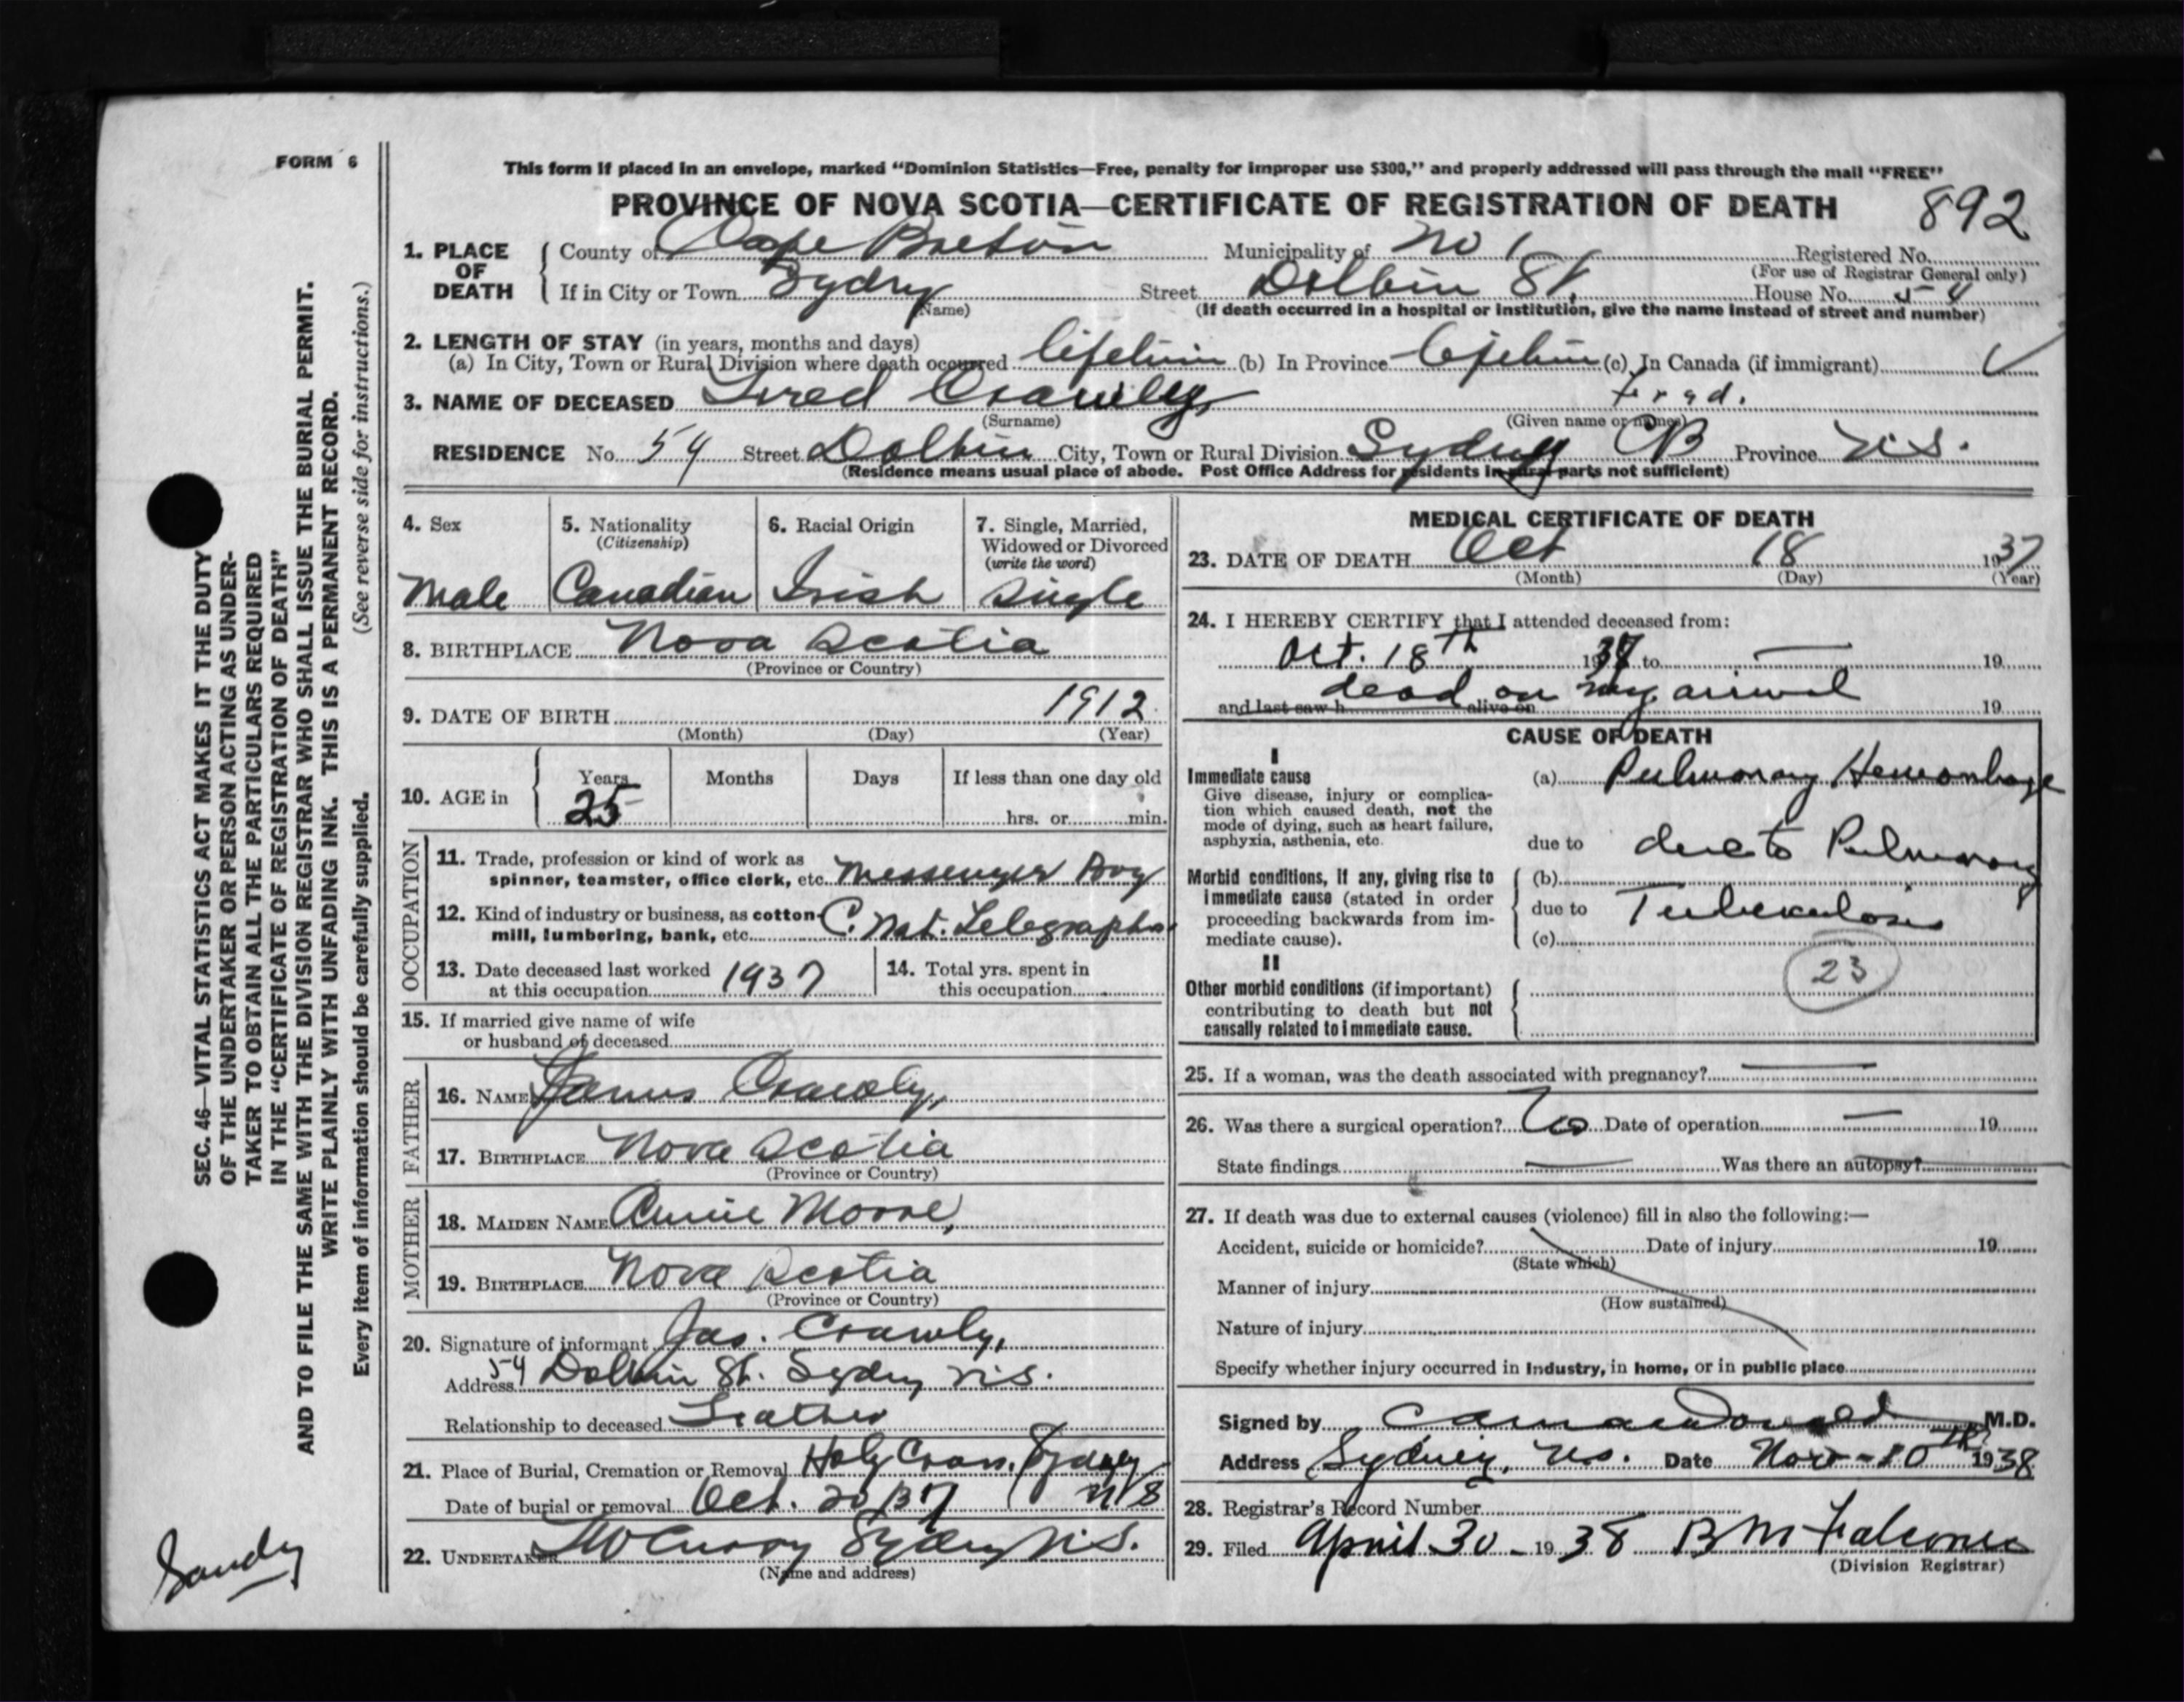 FORM 6
This form if placed in an envelope, marked "Dominion Statistics—Free, penalty for improper use $300," and properly addressed will pass through the mail "FREE"
PROVINCE OF NOVA SCOTIA—CERTIFICATE OF REGISTRATION OF DEATH 892
1. PLACE OF DEATH County of Cape Breton Municipality of No 1 Registered No.
(For use of Registrar General only)
If in City or Town Sydny Street Dolbin St. House No. 54
(Name) (If death occurred in a hospital or institution, give the name instead of street and number)
2. LENGTH OF STAY (in years, months and days)
(a) In City, Town or Rural Division where death occurred lifetim (b) In Province lifetim (c) In Canada (if immigrant)
3. NAME OF DECEASED Fred Crawley Fred.
(Surname) (Given name or names)
RESIDENCE No. 54 Street Dolbin City, Town or Rural Division Sydney CB Province N.S.
(Residence means usual place of abode. Post Office Address for residents in rural parts not sufficient)
4. Sex Male
5. Nationality (Citizenship) Canadian
6. Racial Origin Irish
7. Single, Married, Widowed or Divorced (write the word) Single
8. BIRTHPLACE Nova Scotia
(Province or Country)
9. DATE OF BIRTH 1912
(Month) (Day) (Year)
10. AGE in Years 25 Months Days If less than one day old hrs. or min.
OCCUPATION
11. Trade, profession or kind of work as
spinner, teamster, office clerk, etc. Messenger Boy
12. Kind of industry or business, as cotton
mill, lumbering, bank, etc. C. Nat. Telegraphs
13. Date deceased last worked
at this occupation 1937
14. Total yrs. spent in
this occupation
15. If married give name of wife
or husband of deceased
FATHER
16. NAME James Crawly,
17. BIRTHPLACE Nova Scotia
(Province or Country)
MOTHER
18. MAIDEN NAME Annie Moore,
19. BIRTHPLACE Nova Scotia
(Province or Country)
20. Signature of informant Jas. Crawly,
Address 54 Dolbin St. Sydny N.S.
Relationship to deceased Father
21. Place of Burial, Cremation or Removal Holy Cross, Sydney N S
Date of burial or removal Oct. 20/37
22. UNDERTAKER Sydny N.S.
(Name and address)
MEDICAL CERTIFICATE OF DEATH
23. DATE OF DEATH Oct 18 1937
(Month) (Day) (Year)
24. I HEREBY CERTIFY that I attended deceased from:
Oct. 18th 1937 to — 19
and last saw h alive on dead on my arrival 19
CAUSE OF DEATH
I
Immediate cause (a) Pulmonary Hemorrhage
Give disease, injury or complica-
tion which caused death, not the
mode of dying, such as heart failure,
asphyxia, asthenia, etc.
due to due to Pulmonary
Morbid conditions, if any, giving rise to
immediate cause (stated in order
proceeding backwards from im-
mediate cause).
(b)
due to Tuberculosis
(c)
23
II
Other morbid conditions (if important)
contributing to death but not
causally related to immediate cause.
25. If a woman, was the death associated with pregnancy? —
26. Was there a surgical operation? No Date of operation — 19
State findings — Was there an autopsy? —
27. If death was due to external causes (violence) fill in also the following:—
Accident, suicide or homicide? Date of injury 19
(State which)
Manner of injury
(How sustained)
Nature of injury
Specify whether injury occurred in industry, in home, or in public place
Signed by M.D.
Address Sydney, N.S. Date Nov - 10th 1938
28. Registrar's Record Number
29. Filed April 30 - 1938 B M Falconer
(Division Registrar)
SEC. 46—VITAL STATISTICS ACT MAKES IT THE DUTY
OF THE UNDERTAKER OR PERSON ACTING AS UNDER-
TAKER TO OBTAIN ALL THE PARTICULARS REQUIRED
IN THE "CERTIFICATE OF REGISTRATION OF DEATH"
AND TO FILE THE SAME WITH THE DIVISION REGISTRAR WHO SHALL ISSUE THE BURIAL PERMIT.
WRITE PLAINLY WITH UNFADING INK. THIS IS A PERMANENT RECORD.
Every item of information should be carefully supplied. (See reverse side for instructions.)